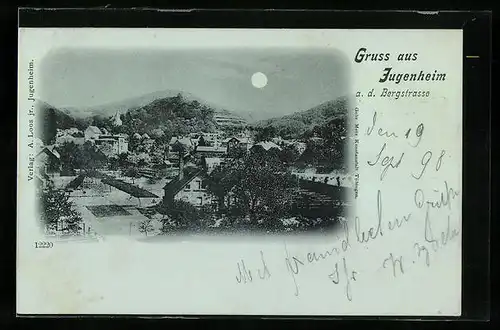 Gruss aus
Jugenheim
a. d. Bergstrasse
Verlag: A. Loos jr., Jugenheim.
Gebr. Metz Kunstanstalt, Tübingen.
den 19
Sept 98.
Mit freundlichen
12220